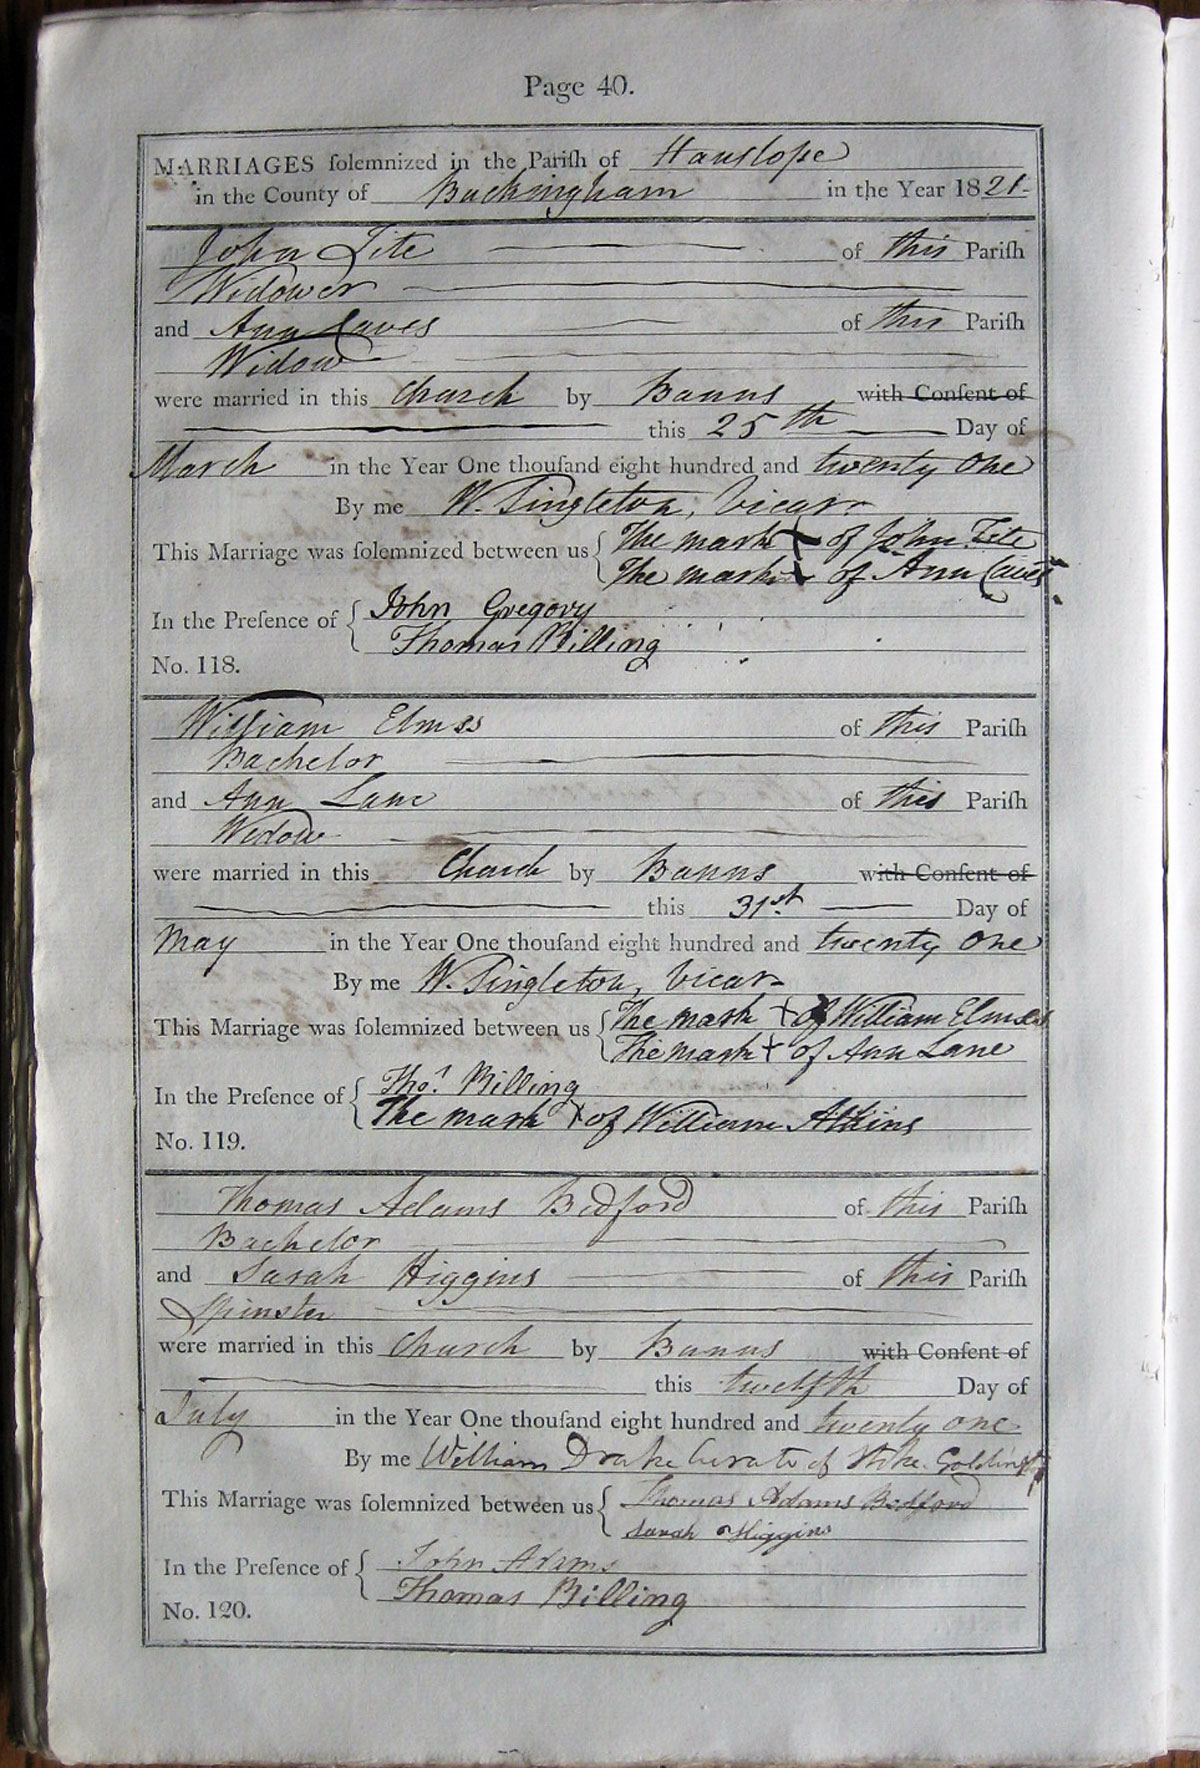 Page 40.
MARRIAGES ſolemnized in the Pariſh of Hanslope
in the County of Buckingham in the Year 1821.
John Tite of this Pariſh
Widower
and Ann Caves of this Pariſh
Widow
were married in this Church by Banns with Conſent of
this 25th Day of
March in the Year One thouſand eight hundred and twenty one
By me W. Singleton, Vicar
This Marriage was ſolemnized between us { The mark X of John Tite
The mark X of Ann Caves
In the Preſence of { John Gregory
Thomas Billing
No. 118.
William Elmes of this Pariſh
Bachelor
and Ann Lane of this Pariſh
Widow
were married in this Church by Banns with Conſent of
this 31st Day of
May in the Year One thouſand eight hundred and twenty one
By me W. Singleton, Vicar
This Marriage was ſolemnized between us { The mark X of William Elmes
The mark X of Ann Lane
In the Preſence of { Thos. Billing
The mark X of William Atkins
No. 119.
Thomas Adams Bedford of this Pariſh
Bachelor
and Sarah Higgins of this Pariſh
Spinster
were married in this Church by Banns with Conſent of
this twelfth Day of
July in the Year One thouſand eight hundred and twenty one
By me William Drake Curate of Stoke
This Marriage was ſolemnized between us { Thomas Adams Bedford
Sarah Higgins
In the Preſence of { John Adams
Thomas Billing
No. 120.